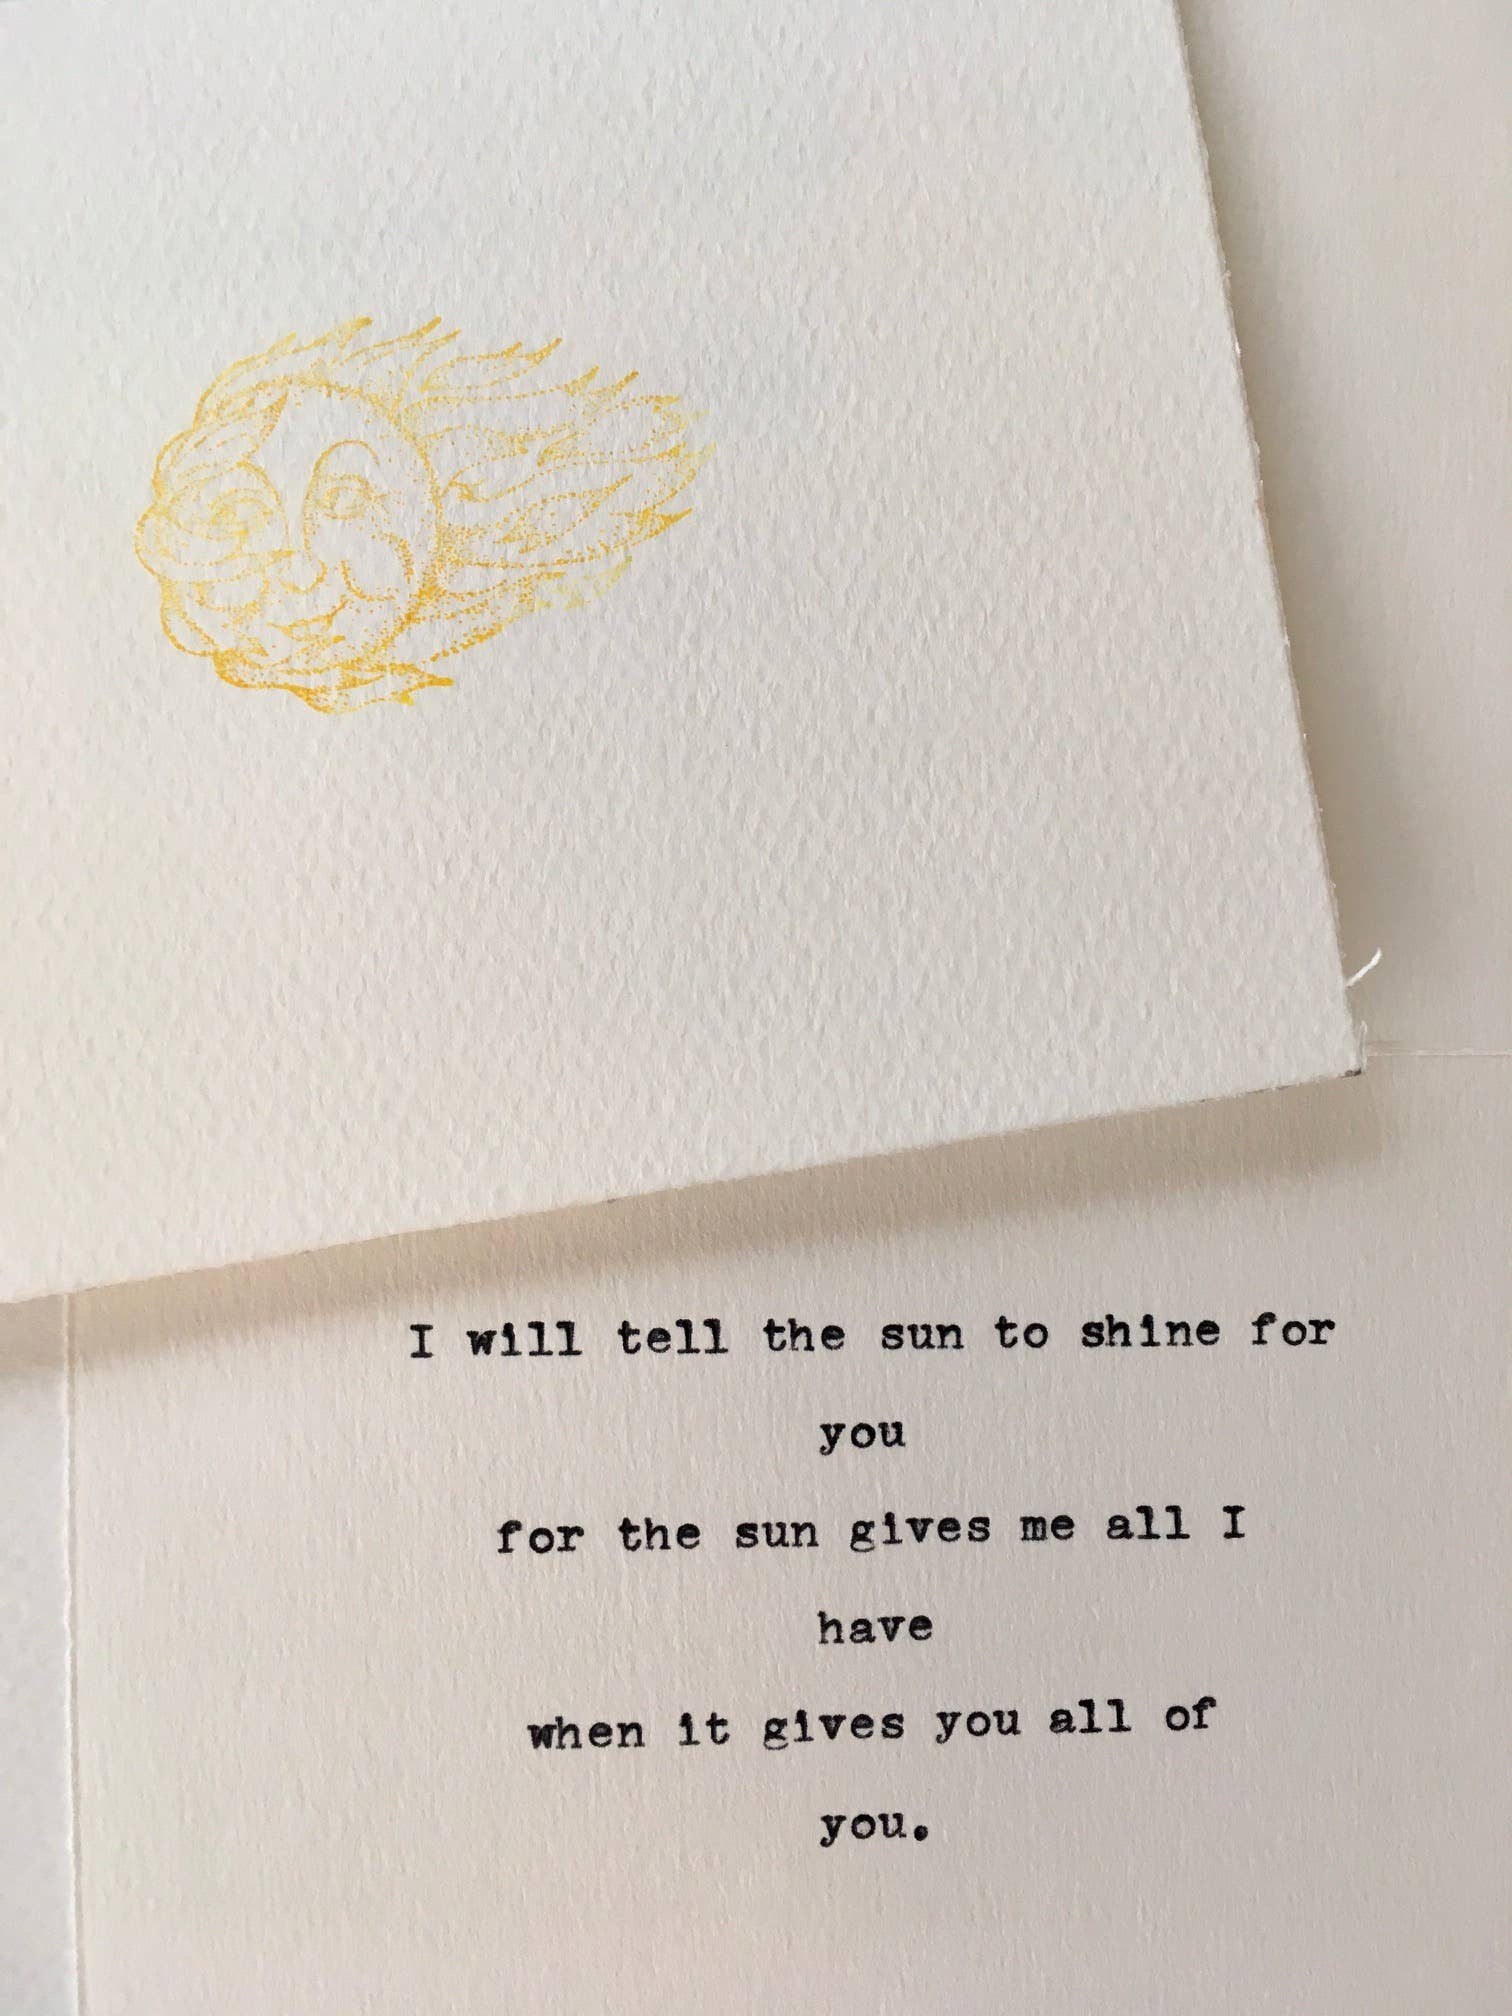 I will tell the sun to shine for
you
for the sun gives me all I
have
when it gives you all of
you.